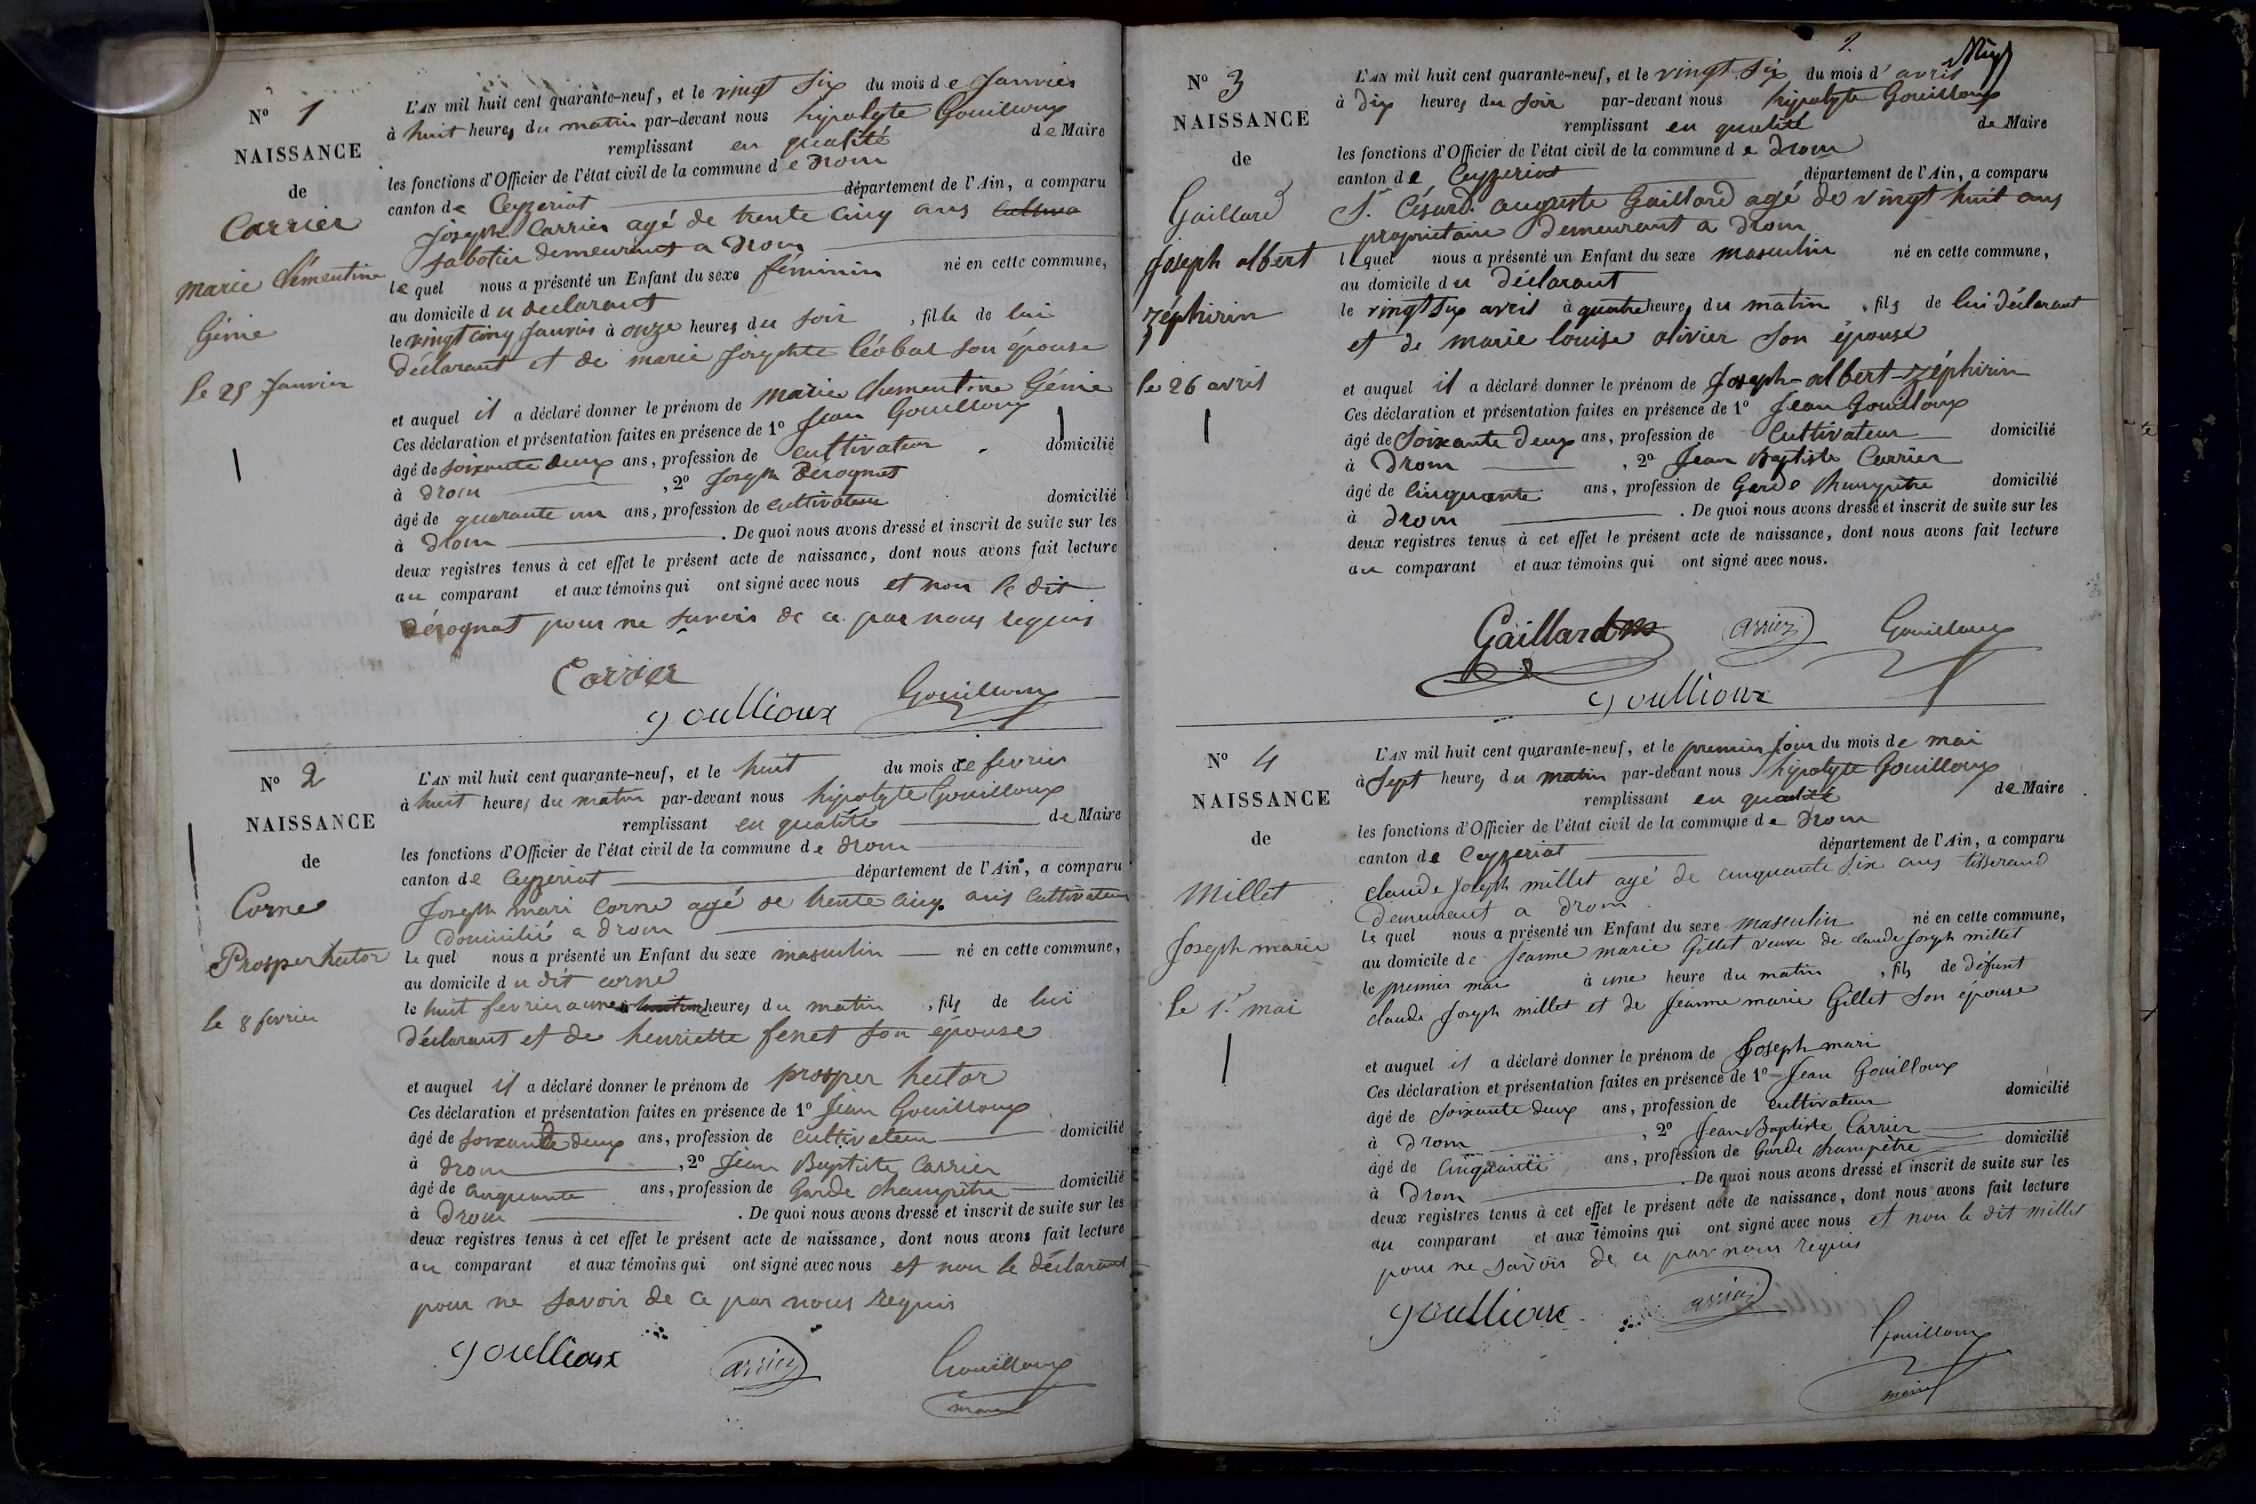 N° 1
NAISSANCE
de
Carrier
Marie Clémentine
Génie
le 25 Janvier
L'AN mil huit cent quarante-neuf, et le vingt six du mois de Janvier
à huit heures du matin par-devant nous hipolyte Gouilloux
remplissant en qualité de Maire
les fonctions d'Officier de l'état civil de la commune de Drom
canton de Ceyzeriat département de l'Ain, a comparu
Joseph Carrier agé de trente cinq ans
sabotier demeurant a Drom
lequel nous a présenté un Enfant du sexe féminin né en cette commune,
au domicile du declarant
le vingt cinq Janvier à onze heures du soir , fille de lui
déclarant et de marie Josephte léobal son épouse
et auquel il a déclaré donner le prénom de Marie Clementine Génie
Ces déclaration et présentation faites en présence de 1° Jean Gouilloux
âgé de soixante deux ans, profession de cultivateur domicilié
à Drom , 2° Joseph Derognat
âgé de quarante un ans, profession de cultivateur domicilié
à Drom . De quoi nous avons dressé et inscrit de suite sur les
deux registres tenus à cet effet le présent acte de naissance, dont nous avons fait lecture
au comparant et aux témoins qui ont signé avec nous et non le dit
Dérognat pour ne savoir de ce par nous requis
Carrier
Goullioux Gouilloux
N° 2
NAISSANCE
de
Corne
Prosper hector
le 8 fevrier
L'AN mil huit cent quarante-neuf, et le huit du mois de fevrier
à huit heures du matin par-devant nous hipolyte Gouilloux
remplissant en qualité de Maire
les fonctions d'Officier de l'état civil de la commune de Drom
canton de Ceyzeriat département de l'Ain, a comparu
Joseph mari corne agé de trente cinq ans cultivateur
domicilié a Drom
lequel nous a présenté un Enfant du sexe masculin né en cette commune,
au domicile du dit corne
le huit fevrier a une heures du matin , fils de lui
déclarant et de henriette fenet son épouse
et auquel il a déclaré donner le prénom de prosper hector
Ces déclaration et présentation faites en présence de 1° Jean Gouilloux
âgé de soixante deux ans, profession de cultivateur domicilié
à Drom , 2° Jean Baptiste Carrier
âgé de cinquante ans, profession de Garde champètre domicilié
à Drom . De quoi nous avons dressé et inscrit de suite sur les
deux registres tenus à cet effet le présent acte de naissance, dont nous avons fait lecture
au comparant et aux témoins qui ont signé avec nous et non le déclarant
pour ne savoir de ce par nous requis
Goullioux Carrier Gouilloux
maire
N° 3
NAISSANCE
de
Gaillard
Joseph albert
zéphirin
le 26 avril
L'AN mil huit cent quarante-neuf, et le vingt six du mois d'avril
à dix heures du soir par-devant nous hipolyte Gouilloux
remplissant en qualité de Maire
les fonctions d'Officier de l'état civil de la commune de Drom
canton de Ceyzeriat département de l'Ain, a comparu
Sr. Césard auguste Gaillard agé de vingt huit ans
proprietaire demeurant a drom
lequel nous a présenté un Enfant du sexe masculin né en cette commune,
au domicile du Déclarant
le vingt six avril à quatre heures du matin , fils de lui déclarant
et de marie louise olivier son épouse
et auquel il a déclaré donner le prénom de Joseph-albert-zéphirin
Ces déclaration et présentation faites en présence de 1° Jean Gouilloux
âgé de soixante deux ans, profession de Cultivateur domicilié
à Drom , 2° Jean Baptiste Carrier
âgé de cinquante ans, profession de Garde champètre domicilié
à Drom . De quoi nous avons dressé et inscrit de suite sur les
deux registres tenus à cet effet le présent acte de naissance, dont nous avons fait lecture
au comparant et aux témoins qui ont signé avec nous.
Gaillard Carrier Gouilloux
Goullioux
N° 4
NAISSANCE
de
Millet
Joseph marie
le 1r mai
L'AN mil huit cent quarante-neuf, et le premier jour du mois de mai
à sept heures du matin par-devant nous hipolyte Gouilloux
remplissant en qualité de Maire
les fonctions d'Officier de l'état civil de la commune de Drom
canton de Ceyzeriat département de l'Ain, a comparu
claude Joseph millet agé de cinquante six ans tisserand
demeurant a drom
lequel nous a présenté un Enfant du sexe masculin né en cette commune,
au domicile de Jeanne marie Gillet veuve de claude Joseph millet
le premier mai à une heure du matin , fils de défunt
claude Joseph millet et de Jeanne marie Gillet son épouse
et auquel il a déclaré donner le prénom de Joseph mari
Ces déclaration et présentation faites en présence de 1° Jean Gouilloux
âgé de soixante deux ans, profession de cultivateur domicilié
à Drom , 2° Jean Baptiste Carrier
âgé de cinquante ans, profession de Garde champètre domicilié
à Drom . De quoi nous avons dressé et inscrit de suite sur les
deux registres tenus à cet effet le présent acte de naissance, dont nous avons fait lecture
au comparant et aux témoins qui ont signé avec nous et non le dit millet
pour ne savoir de ce par nous requis
Goullioux Carrier Gouilloux
maire